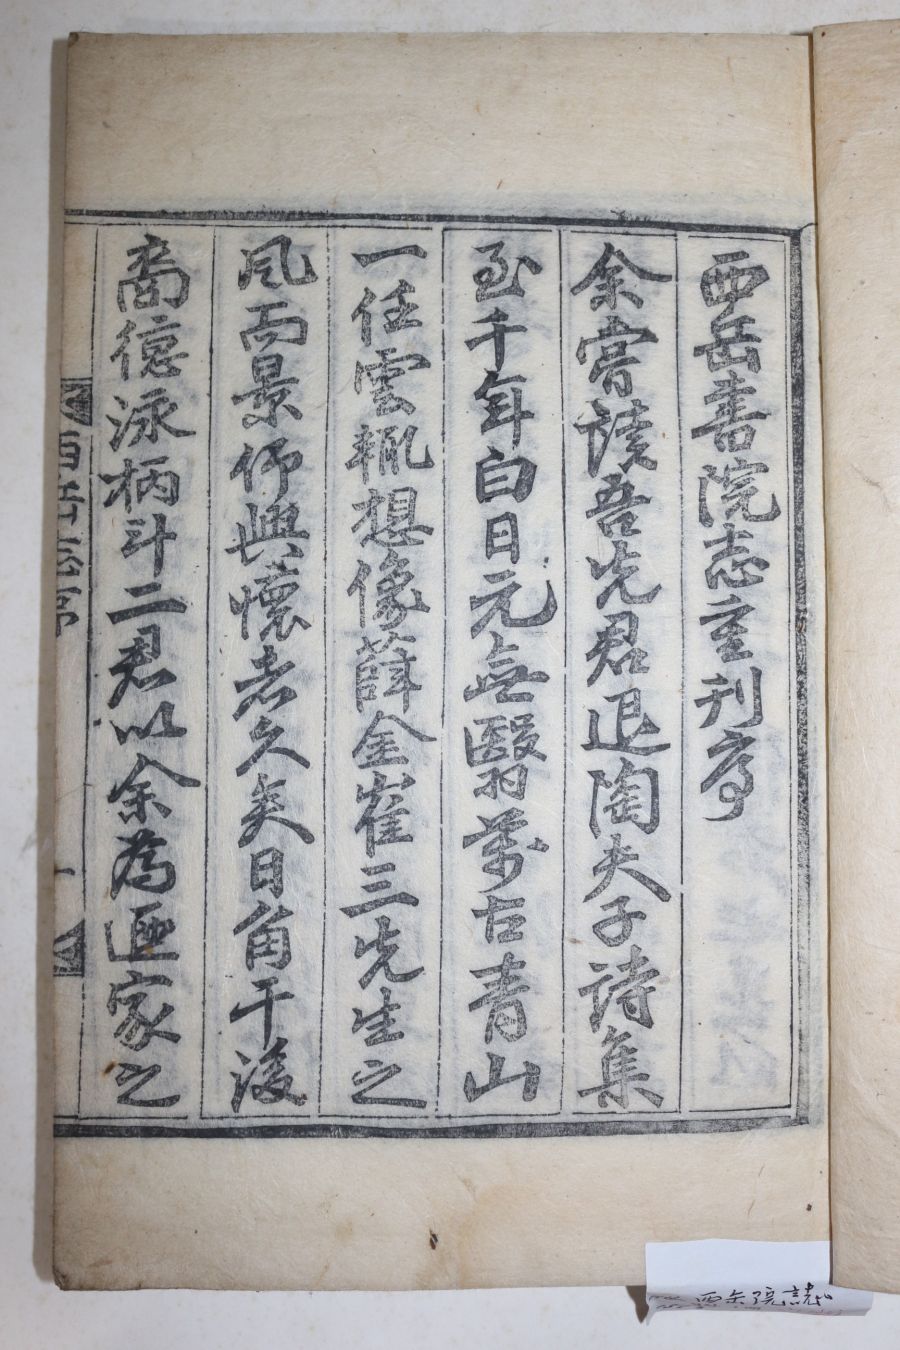 西岳書院志重刊序
余嘗讀吾先君退陶夫子詩集
至千年白日元無翳萬古青山
一任雲輒想像薛金崔三先生之
風而景仰興懷者久矣日角干後
裔德泳柄斗二君以余為退家之
西岳志序
一
西岳院誌